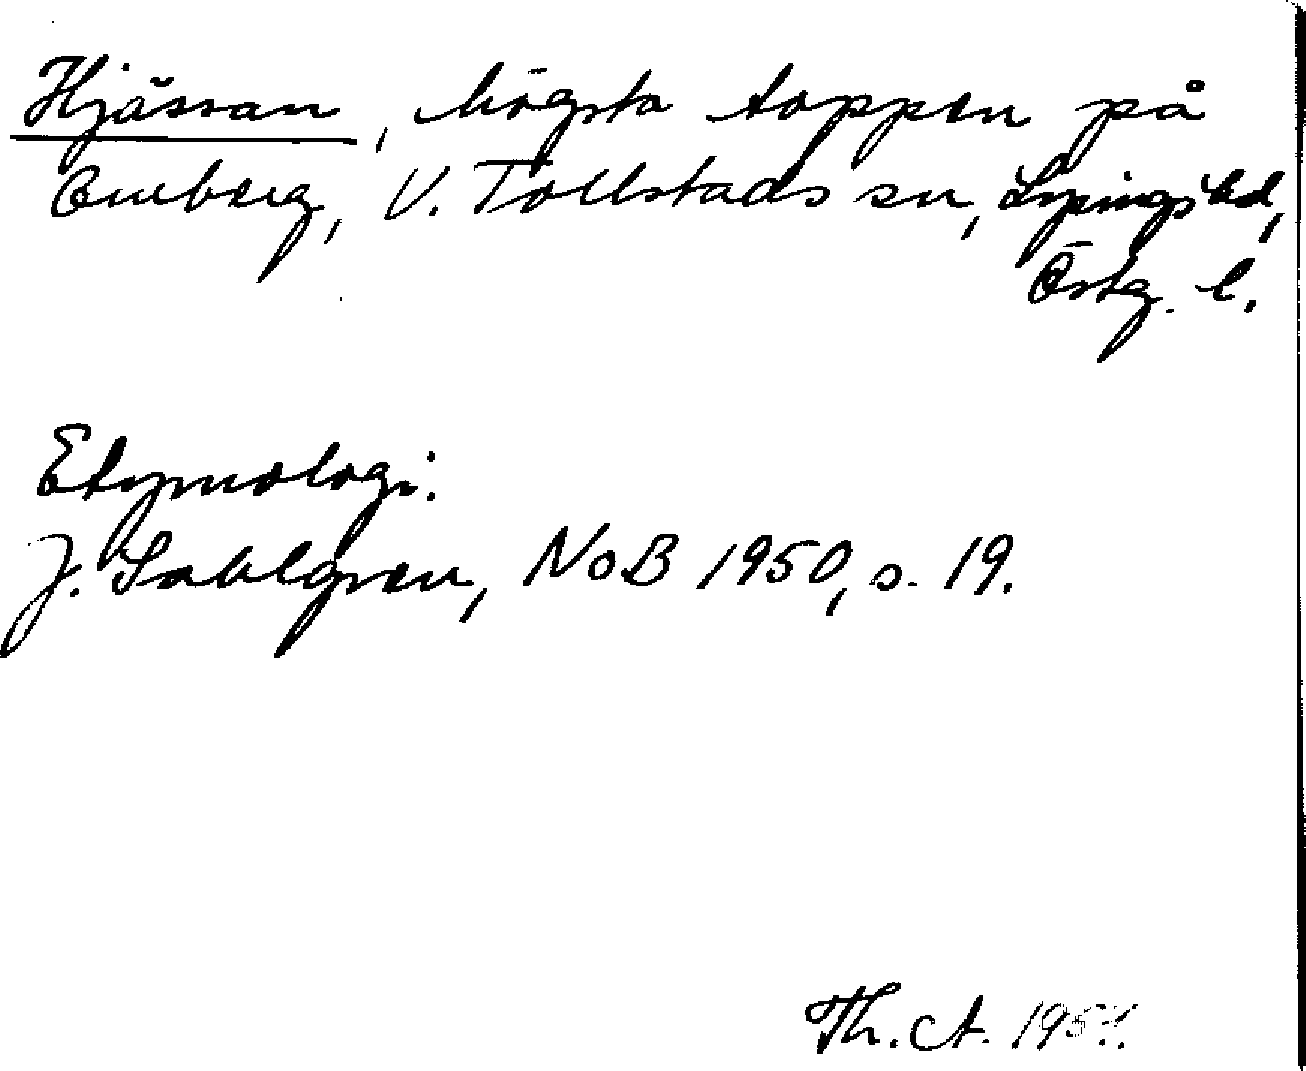 Hjässan, högsta toppen på
Omberg, V. Tollstads sn, Lysings hd,
Östg. l.
Etymologi:
J. Sahlgren, NoB 1950, s. 19.
Th. A.